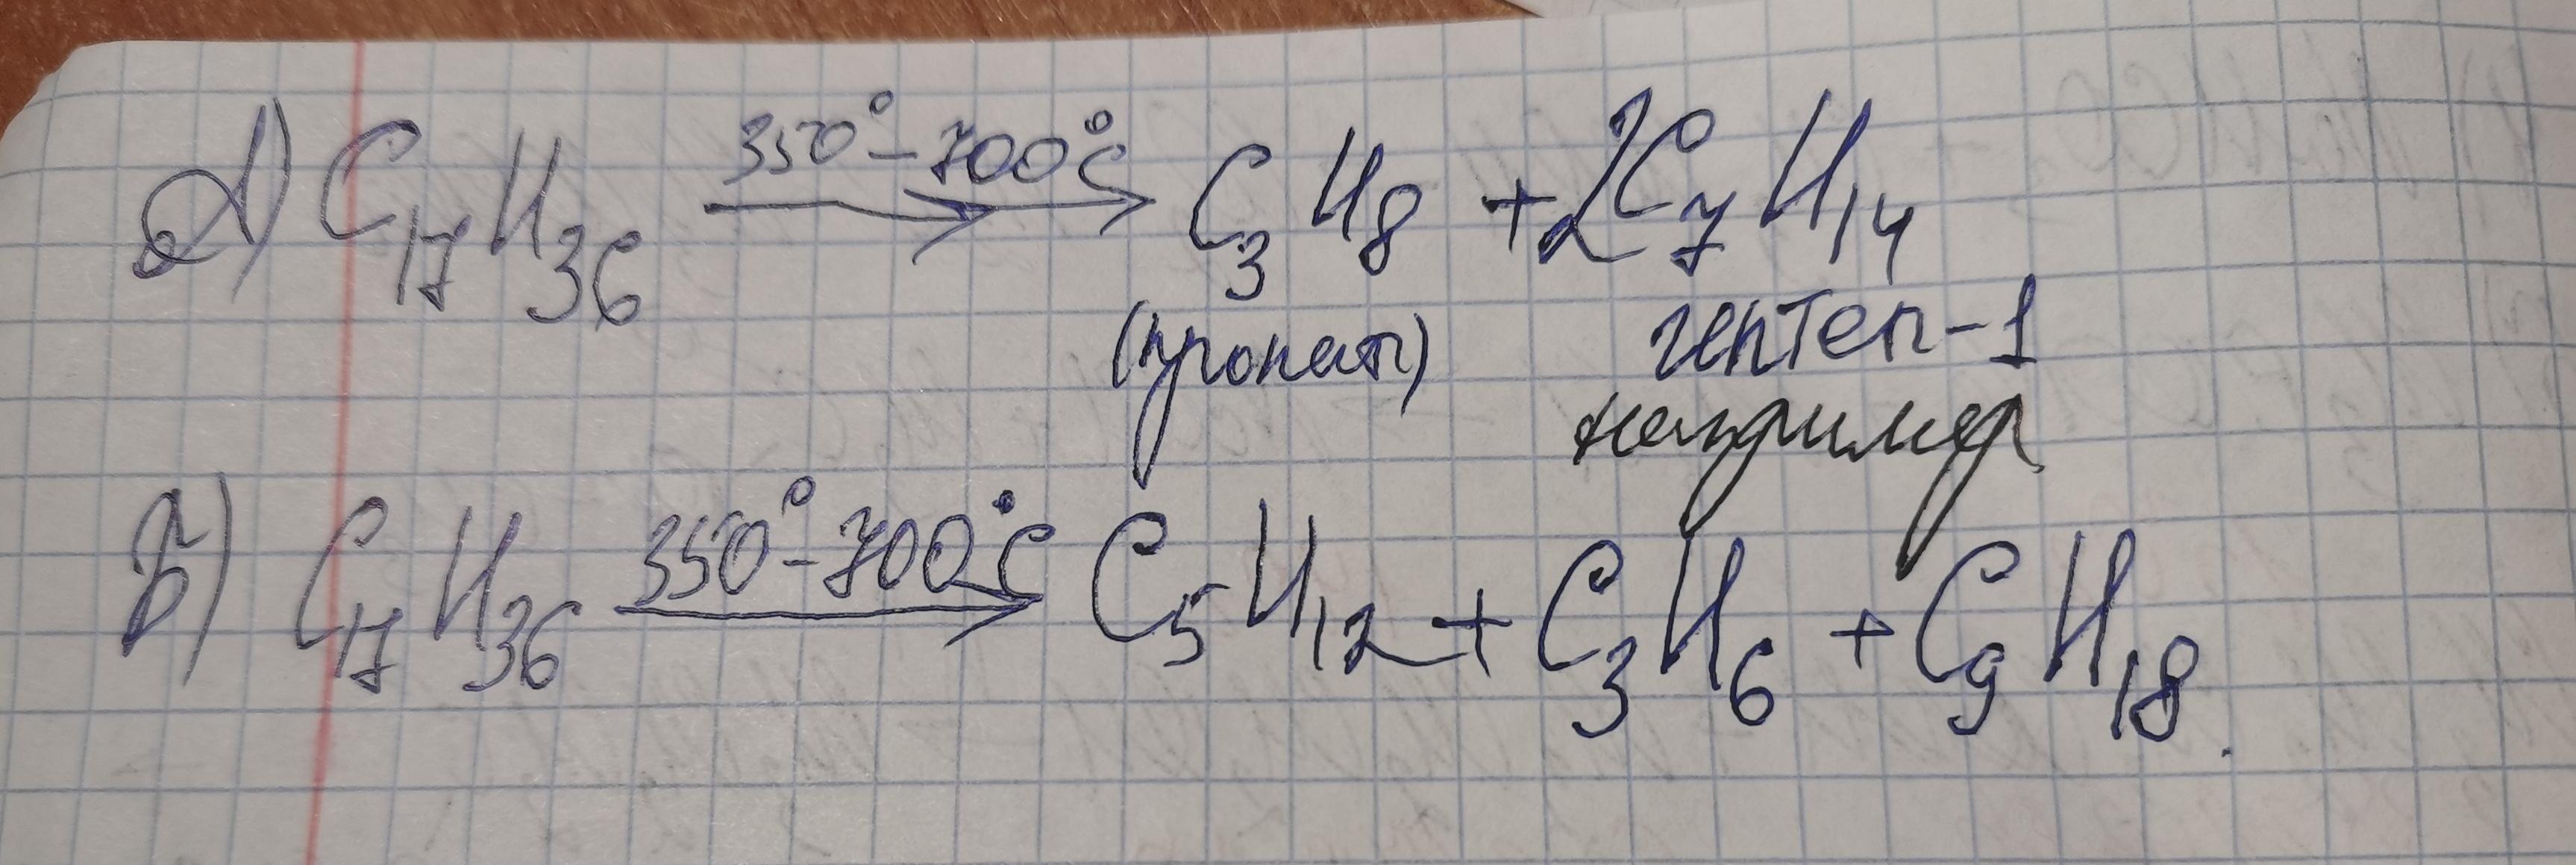 А) C₁₇H₃₆ 350°-700°C → C₃H₈ + 2C₇H₁₄
(пропан) гептен-1
например
Б) C₁₇H₃₆ 350°-700°C → C₅H₁₂ + C₃H₆ + C₉H₁₈.